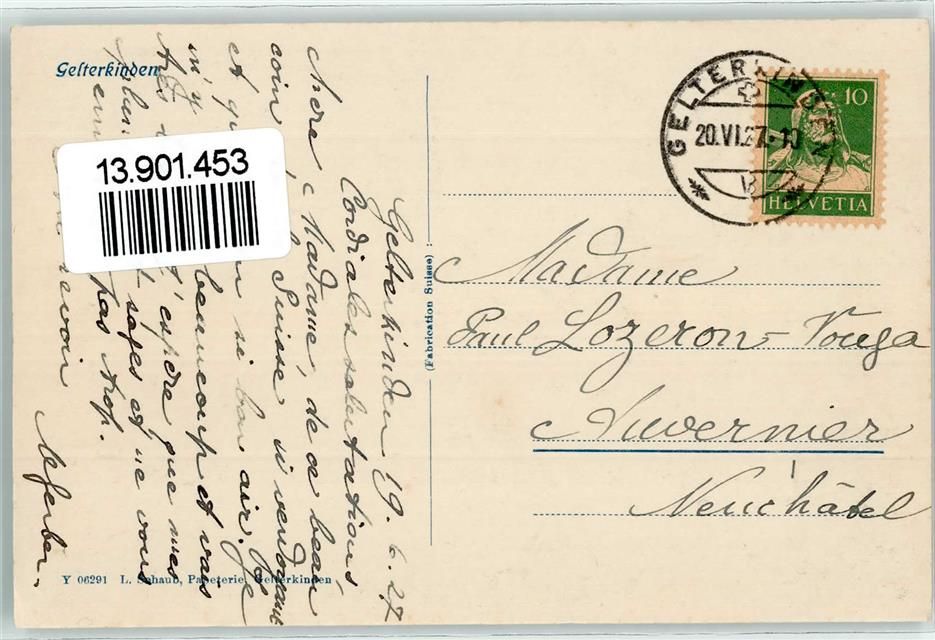 Gelterkinden
13.901.453
GELTERKINDEN
20.VI.27.-10
10
HELVETIA
Gelterkinden 19.6.27
Cordiales salutations
chère Madame, de ce beau
coin de Suisse si verdoyant
A si bon air. Je
m'y beaucoup et vais
j'espère que mes
sages et ne vous
pas trop.
revoir
(Fabrication Suisse)
Madame
Paul Lozeron-Vouga
Auvernier
Neuchâtel
Y 06291 L. Schaub, Papeterie, Gelterkinden